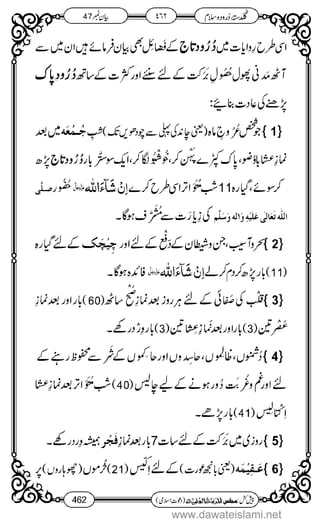 گلدستۂ درود و سلام ٤٦٢ بیان نمبر 47
اسی طرح رِوایات میں دُرُودِ تاج کے فَضائل بھی بیان فرمائے ہیں ان میں سے
آٹھ مَدَنی پھول حُصُولِ بَرَکت کے لئے سنئے اور کثرت کے ساتھ دُرُودِ پاک
پڑھنے کی عادت بنائیے:
{1} جو شخص عُرُوجِ ماہ (یعنی چاند کی پہلی سے چودھویں تک) شبِ جُمُعہ میں بعد
نمازِ عشا باوُضو، پاک کپڑے پہن کر، خُوشبو لگا کر ایک سو ستر بار دُرُودِ تاج پڑھ
کر سوئے، گیارہ 11 شب مُتَواتِر اسی طرح کرے اِنْ شَآءَاللہ عزوجل حُضُور صلی
اللہ تعالی علیہ والہ وسلم کی زِیارت سے مُشَرَّف ہوگا۔
{2} سحر وآسیب، جن وشیطان کے دَفع کے لئے اور چیچک کے لئے گیارہ
(11) بار پڑھ کر دم کر لے اِنْ شَآءَاللہ عزوجل فائدہ ہوگا۔
{3} قلب کی صَفائی کے لئے ہر روز بعد نمازِ صُبْح ساٹھ (60) بار اور بعد نمازِ
عَصْر تین (3) بار اور بعد نمازِ عشا تین (3) بار وِرد رکھے۔
{4} دُشمنوں، ظالموں، حاسِدوں اور حاکموں کے شَر سے محفوظ رہنے کے
لئے اور غم وغُربت دُور ہونے کے لیے چالیس (40) شب مُتَواتِر بعد نمازِ عشا
اِکتالیس (41) بار پڑھے۔
{5} روزی میں بَرَکت کے لئے سات 7 بار بعد نمازِ فَجْر ہمیشہ وِرد رکھے۔
{6} عَقِیْمہ (یعنی بانجھ عورت) کے لئے اِکیس (21) خُرموں (چھوہاروں) پر
462 (دعوت اسلامی)
www.dawateislami.net